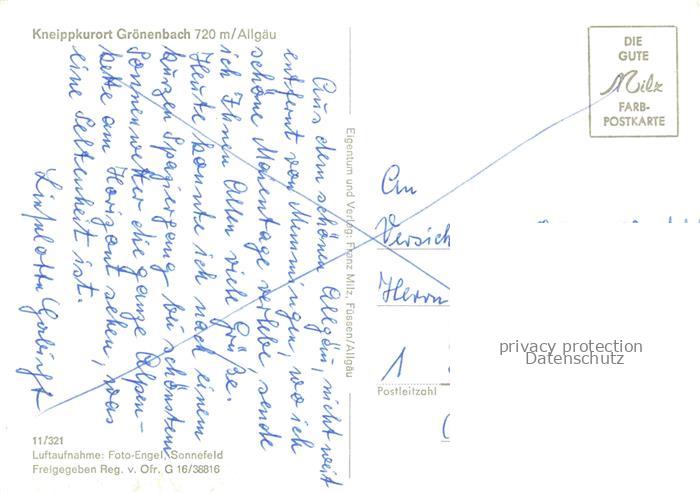 Kneippkurort Grönenbach 720 m/Allgäu
Aus dem schönen Allgäu, nicht weit
entfernt von Memmingen, wo ich
schöne Maientage verlebe, sende
ich Ihnen Allen viele Grüße.
Heute konnte ich nach einem
kurzen Spaziergang bei schönstem
Sonnenwetter die ganze Alpen-
kette am Horizont sehen, was
eine Seltenheit ist.
Eigentum und Verlag: Franz Milz, Füssen/Allgäu
DIE
GUTE
Milz
FARB-
POSTKARTE
An
Versich
Herrn
1
Postleitzahl
privacy protection
Datenschutz
11/321
Luftaufnahme: Foto-Engel, Sonnefeld
Freigegeben Reg. v. Ofr. G 16/38816